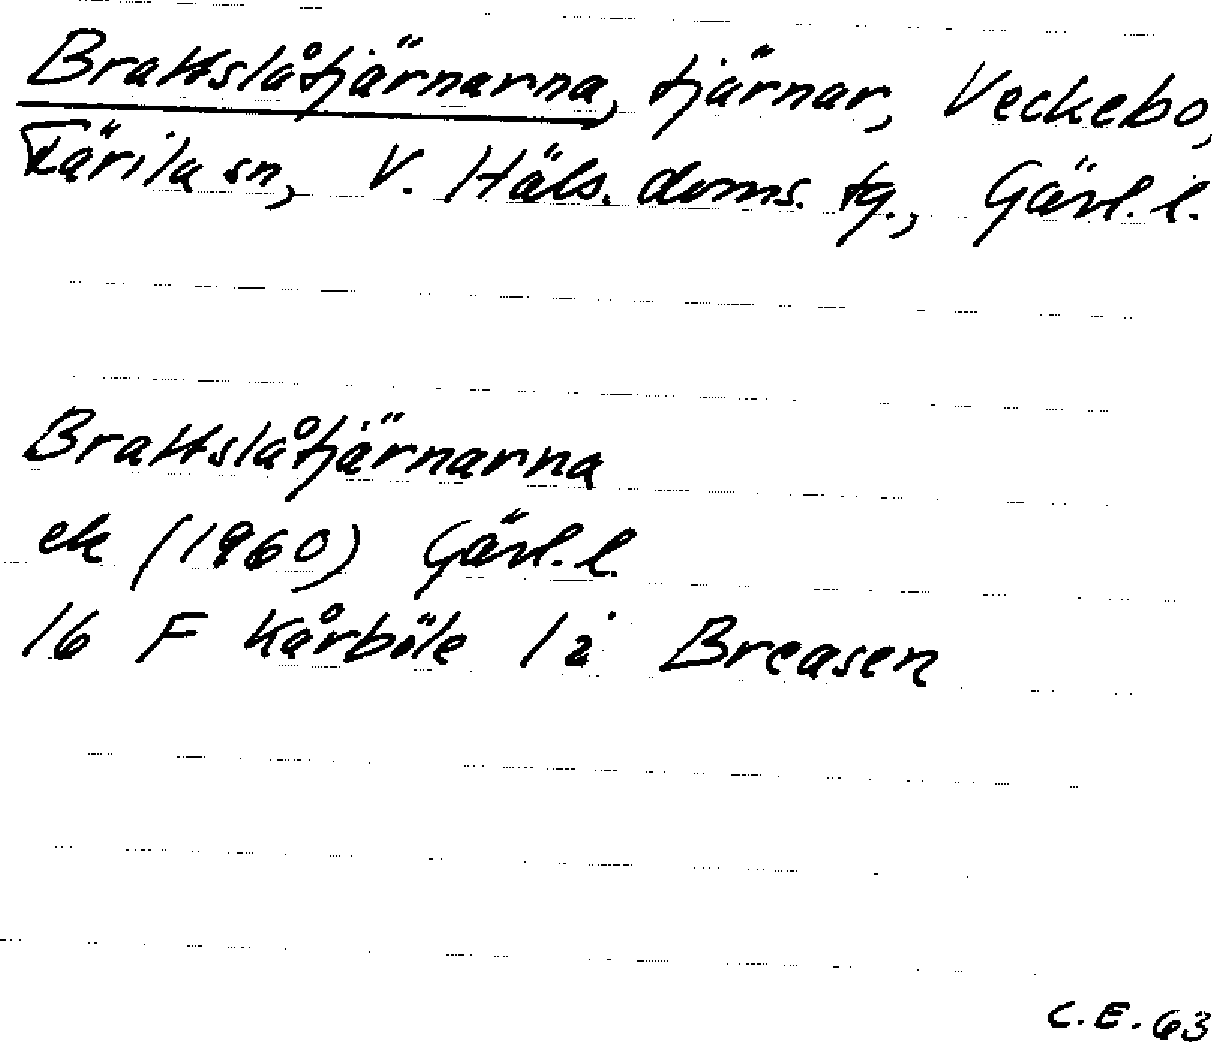 Brattslåtjärnarna, tjärnar, Veckebo,
Färila sn, V. Häls. doms. tg., Gävl. l.
Brattslåtjärnarna
ek (1960) Gävl. l.
16 F Kårböle 1 i Breasen
C.E. 63